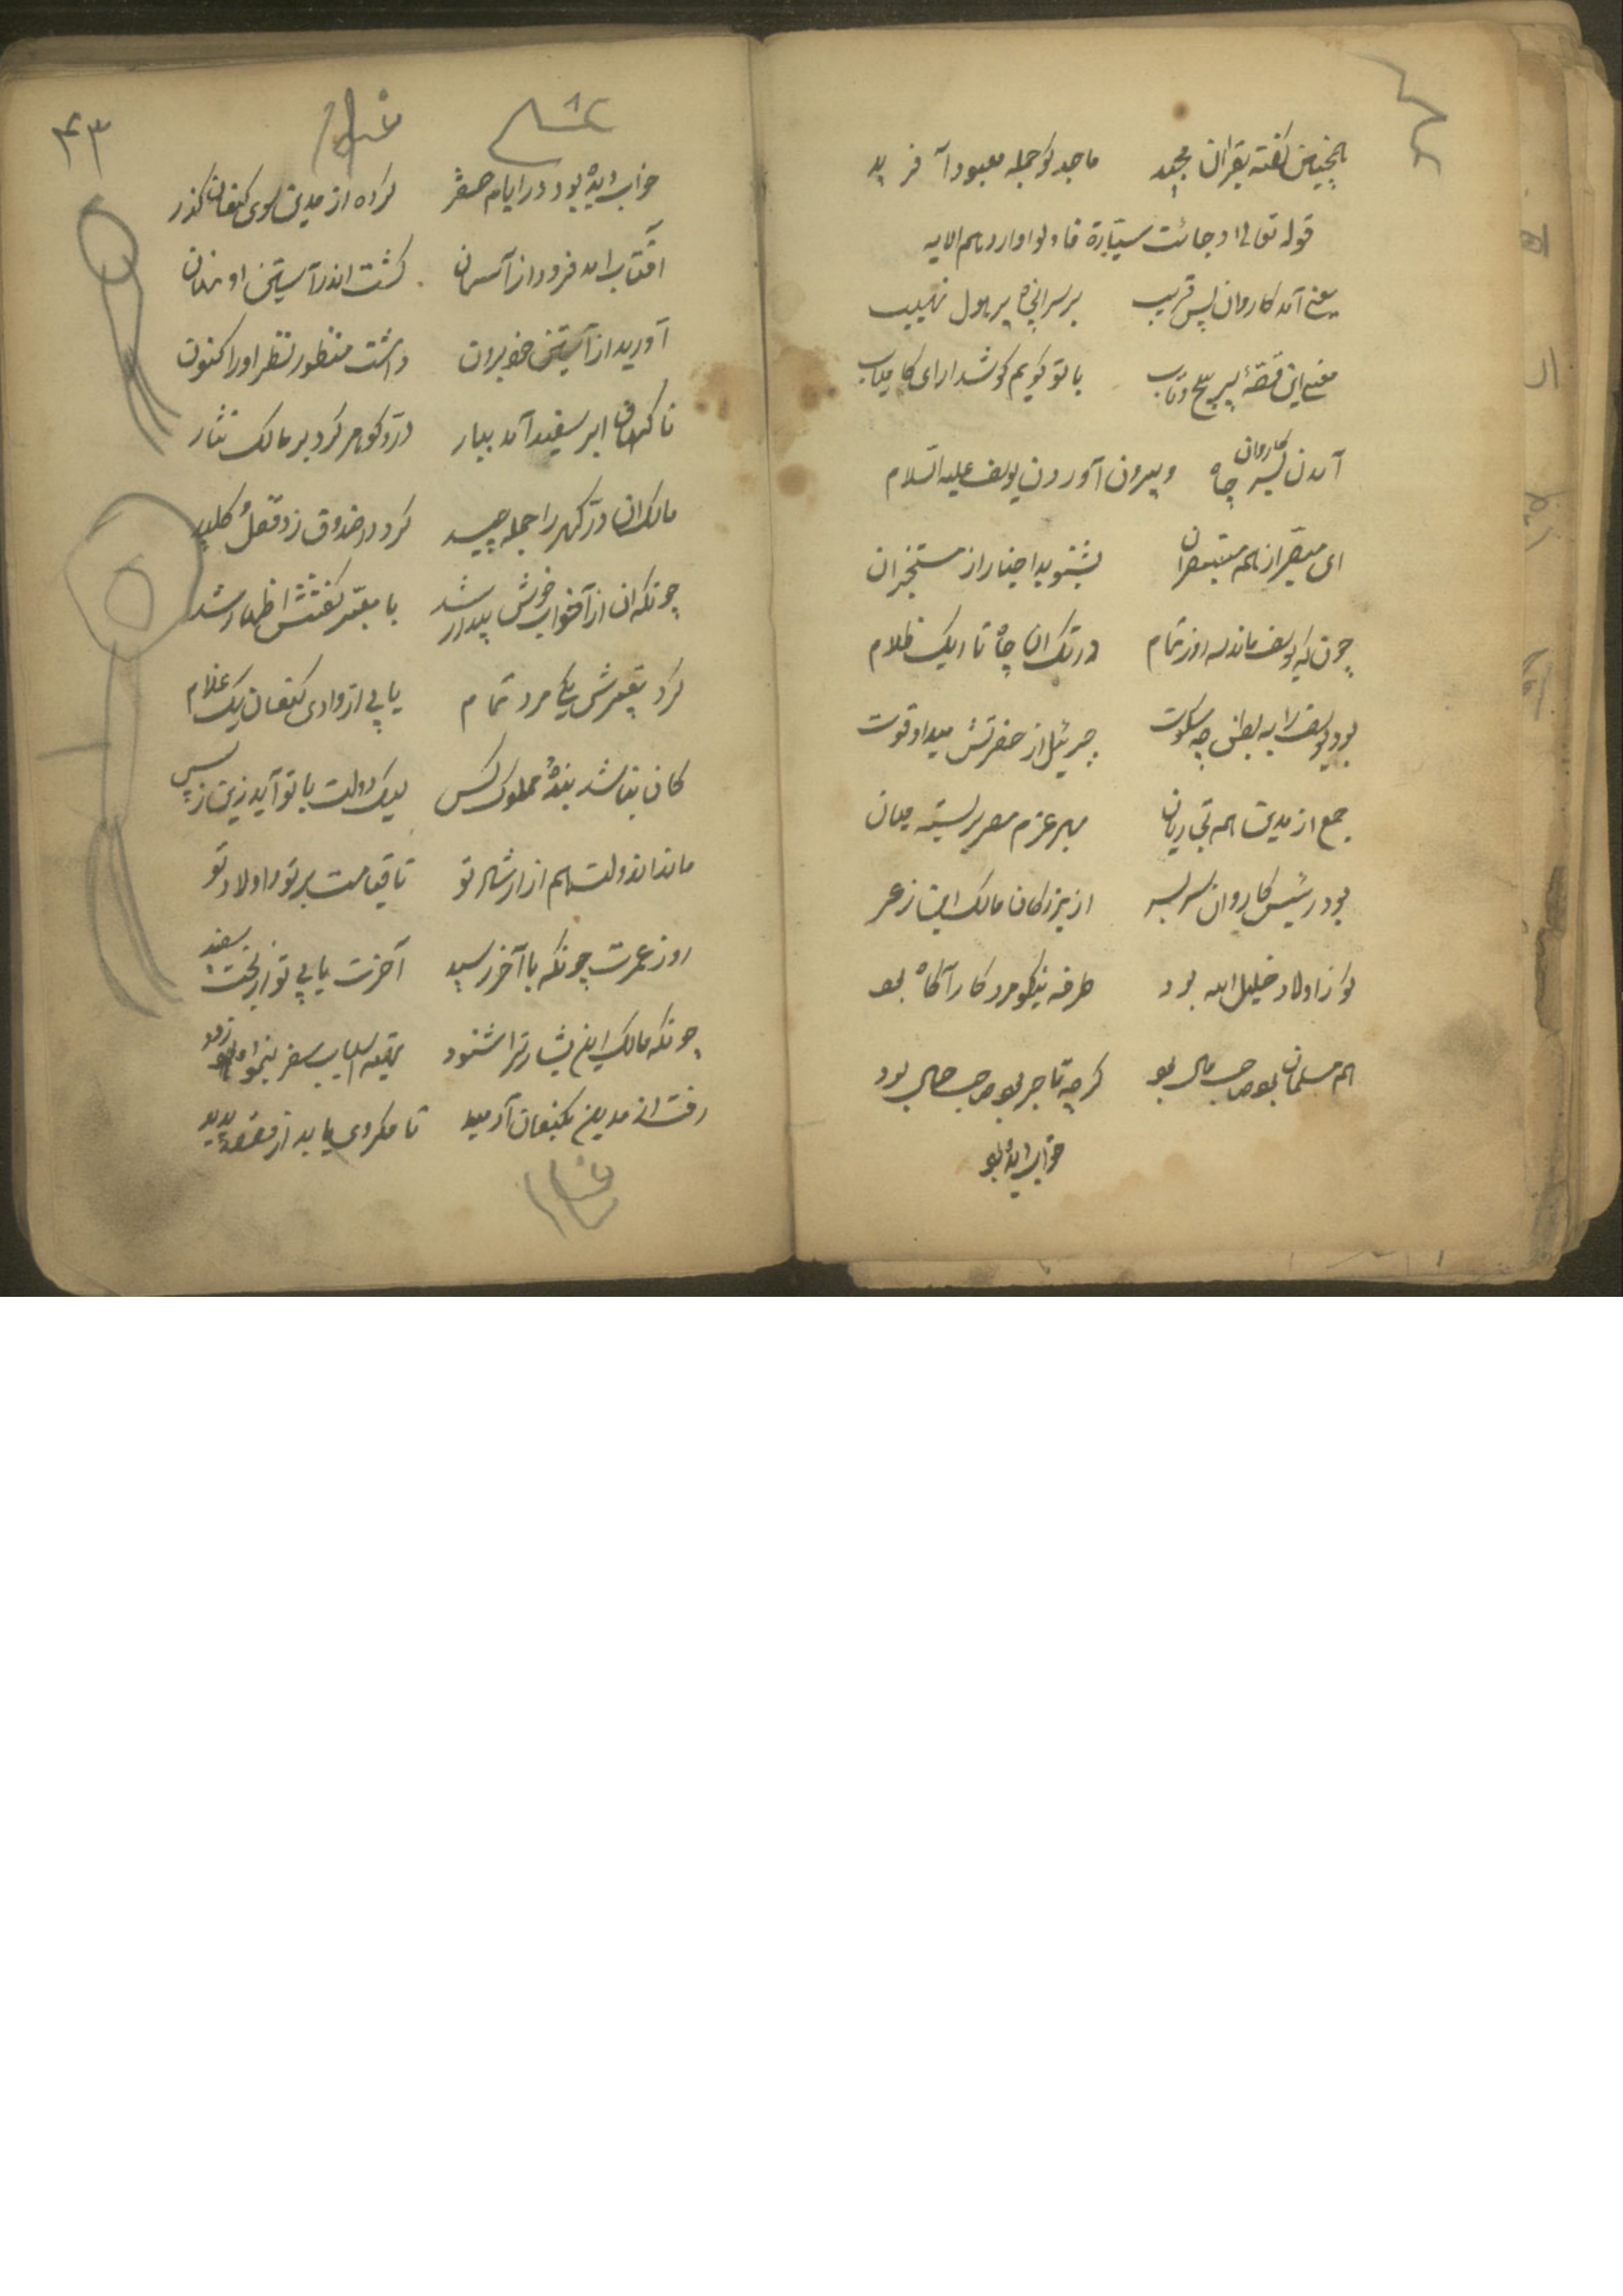 همچنین گفته بقران مجید ماجد کو جمله معبود آفرید
قوله تعالی وجائت سیّارة فارسلوا واردهم الایه
یعنی آمد کاروان بس قریب بر سر انچاه پر هول نهیب
معنی این قصّهٔ پر پیچ و تاب با تو کویم کوش دار ای کامیاب
آمدن کاروان بسر چاه و بیرون آوردن یوسف علیه السلام
ای از همه مستبصران بشنوید اخبار از مستخبران
چون که یوسف ماند سه روز تمام در تک ان چاه تاریک ظلام
بود یوسف را به بطن چه سکوت جبرئیل از حضرتش میداد قوت
جمع از مدین همه تجاریان بهر عزم مصر بر بسته میان
بود رئیس کاروان سر بسر از بزرکان مالک ابن زعر
کو از اولاد خلیل الله بود طرفه نیکو مرد کار آکاه بود
هم مسلمان بود صاحب مال بود کرچه تاجر بود صاحب حال بود
خواب دیده بود
۴۳
خواب دیده بود در ایام صغر کرده از مدین سوی کنعان کذر
افتاب امد فرود از آسمان کشت اندر آستین او نهان
آورید از آستین خود برون داشت منظور نظر او را کنون
ناکهان ابر سفید آمد ببار درّ و کوهر کرد بر مالک نثار
مالک ان درّ کهر را جمله چید کرد در صندوق زد قفل و کلید
چونکه ان از خواب خوش بیدار شد با معبّر کفتش اظهار شد
کرد تعبیرش یکی مرد تمام یابی از وادی کنعان یک غلام
کان نباشد بندهٔ مملوک کس لیک دولت با تو آید زین سپس
ماند اندولت هم از ارشاد تو تا قیامت بر تو و اولاد تو
روز عمرت چونکه با آخر رسید آخرت یابی تو از بخت سفید
چونکه مالک این بشارترا شنود تعبیه اسباب سفر بنمود زود
رفت از مدین بکنعان آرمید تا مکروی یابد از قصه پدید